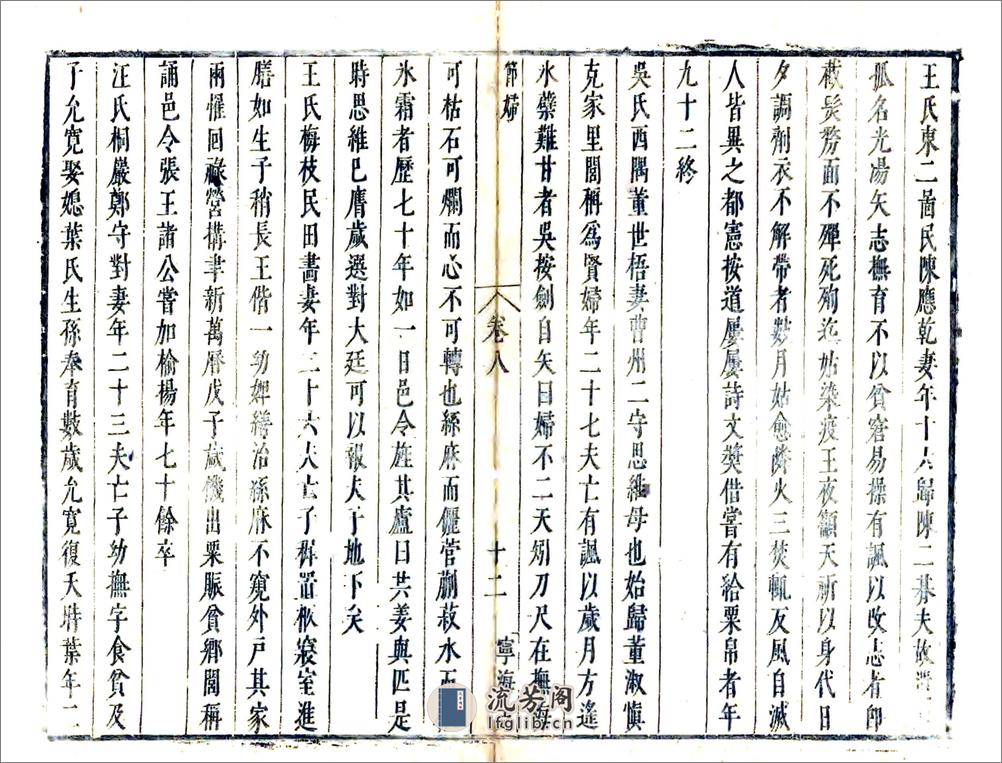 王氏東二啚民陳應乾妻年十八歸陳二朞夫故
孤名光湯矢志撫育不以貧窘易操有諷以改志者卽
截髮剺面不殫死殉迄姑染疫王夜籲天祈以身代日
夕調劑衣不解帶者數月姑愈鄰火三焚輒反風自滅
人皆異之都憲按道屢屢詩文獎借嘗有給粟帛者年
九十二終
吳氏西隅董世梧妻曹州二守思維母也始歸董淑愼
克家里閭稱爲賢婦年二十七夫亡有諷以歲月方遙
氷蘗難甘者吳按劍自矢曰婦不二天矧刀尺在撫
節婦
卷八
十二
寧海
可枯石可爛而心不可轉也絲麻而儷菅蒯菽水而
氷霜者歷七十年如一日邑令旌其廬曰共姜與匹是
時思維已膺歲選對大廷可以報夫于地下矣
王氏梅枝民田畵妻年二十六夫亡子穉置柩寢室進
膳如生子稍長王偕一幼婢績治絲麻不窺外戸其家
兩罹回祿營搆聿新萬曆戊子歲饑出粟賑貧鄉閭稱
誦邑令張王諸公嘗加楡楊年七十餘卒
汪氏桐巖鄭守對妻年二十三夫亡子幼撫字食貧及
子允寛娶媳葉氏生孫奉育數歲允寛復夭時葉年二
流芳閣
lfglib.cn